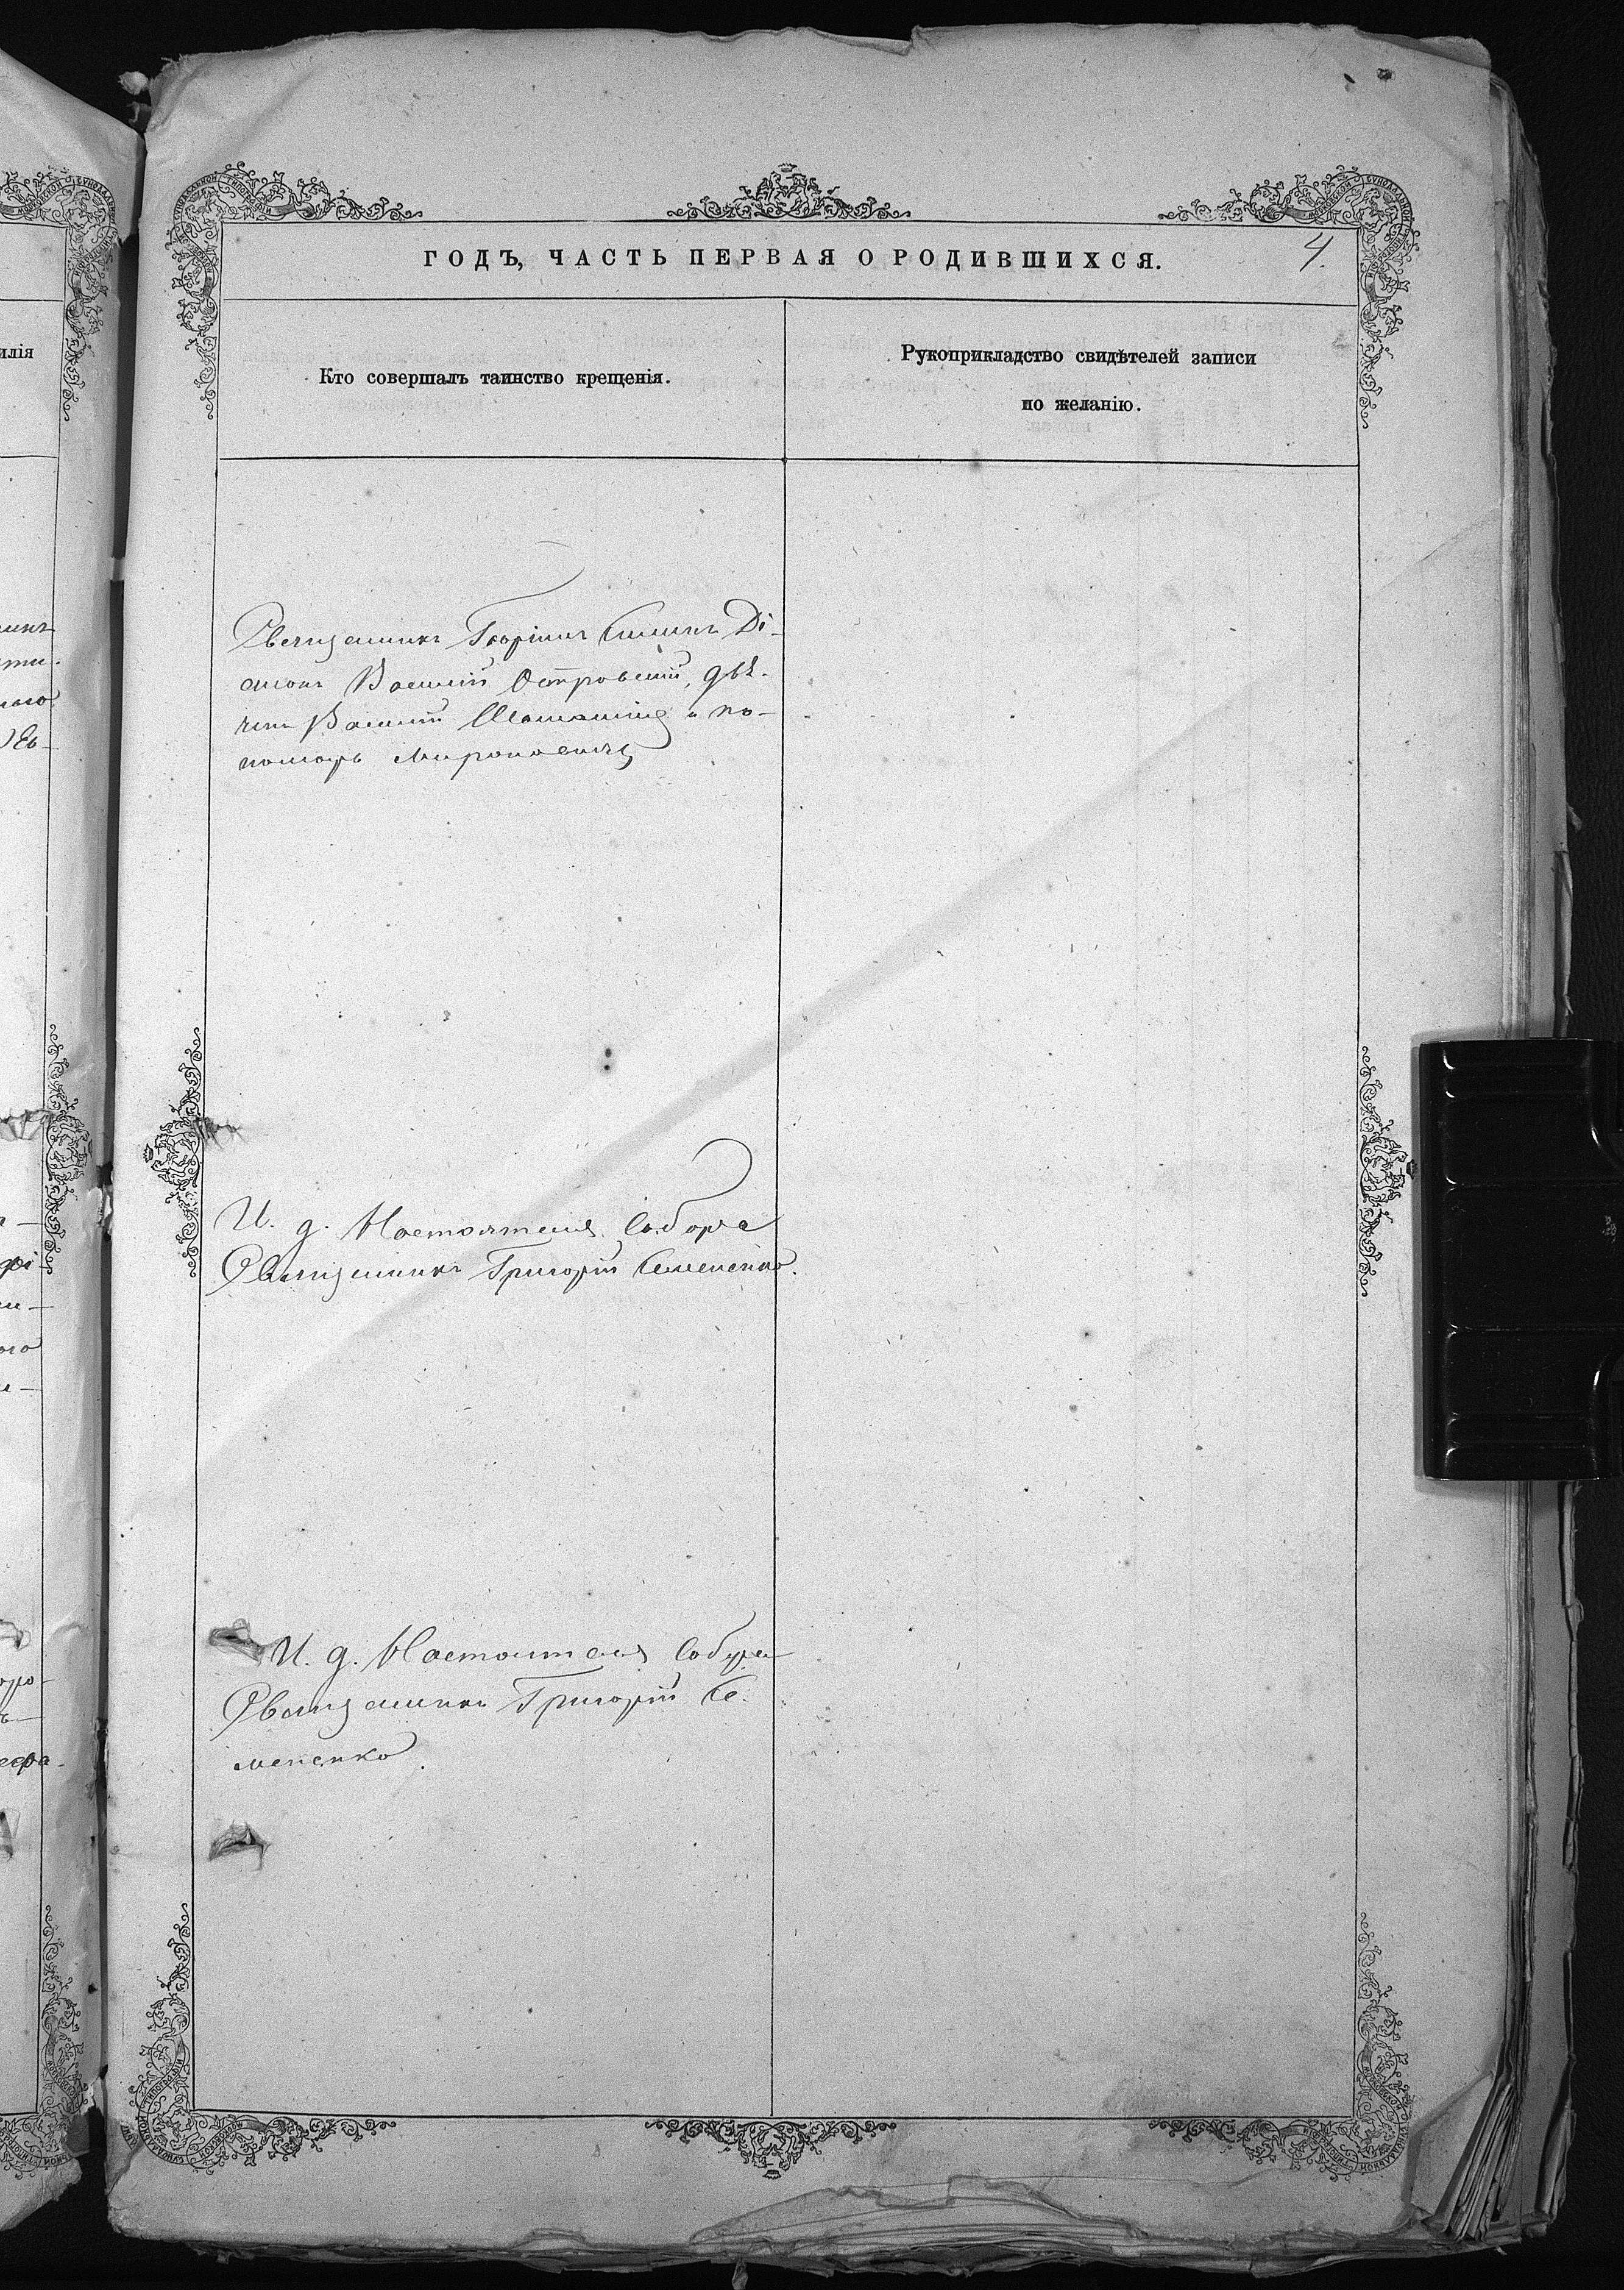 илія
ГОДЪ, ЧАСТЬ ПЕРВАЯ О РОДИВШИХСЯ.
4.
Кто совершалъ таинство крещенія.
Рукоприкладство свидѣтелей записи
по желанію.
Священникъ Ді-
аконъ Василій Островскій, дья-
чекъ Василій и по-
номарь Мироновичъ
И. д. Настоятеля Собора
Священникъ Григорій Семененко.
И. д. Настоятеля Собора
Священникъ Григорій Се-
мененко.